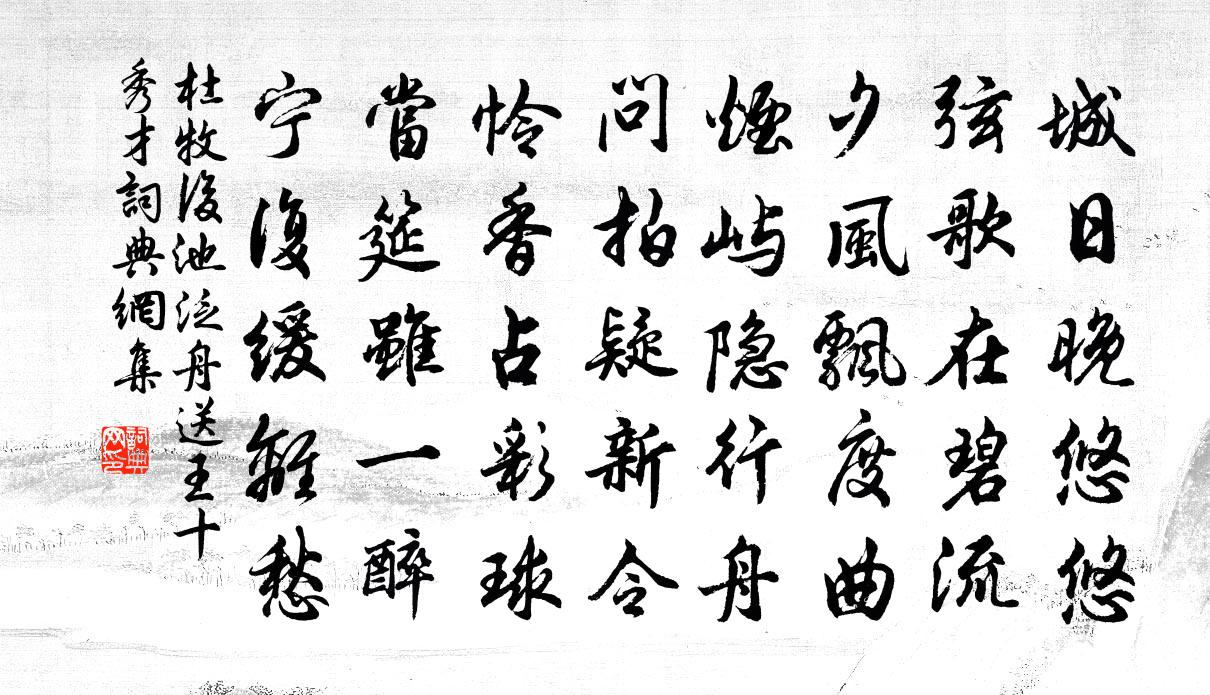 城日晚悠悠
弦歌在碧流
夕風飄度曲
煙屿隐行舟
問拍疑新令
怜香占彩球
當筵雖一醉
宁復缓離愁
杜牧後池泛舟送王十
秀才詞典網集
詞典
网印